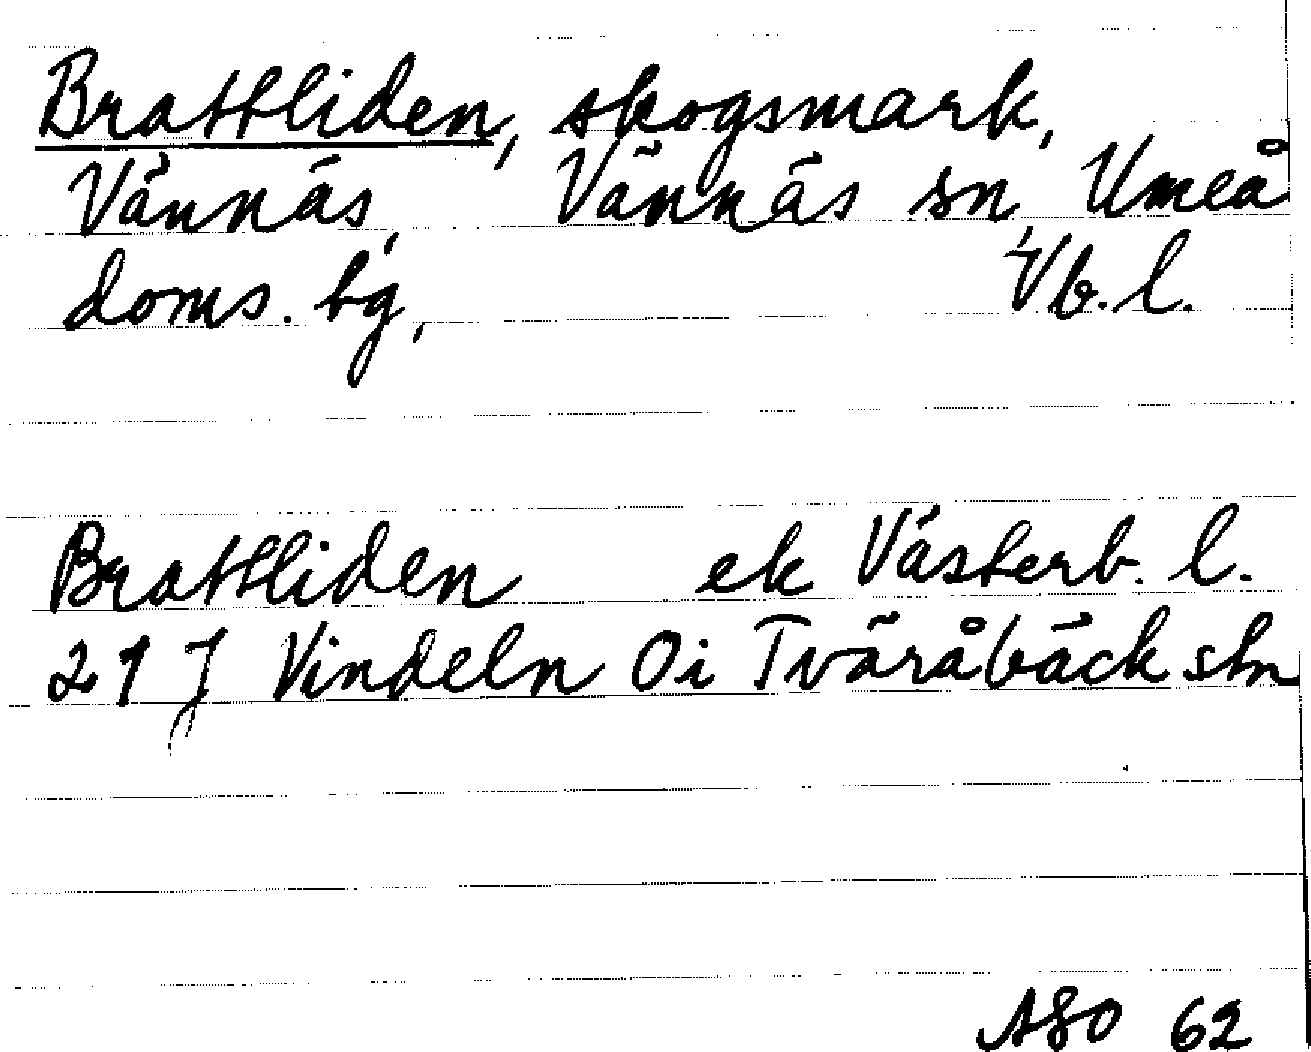 Brattliden, skogsmark,
Vännäs, Vännäs sn, Umeå
doms. bg, Vb. l.
Brattliden ek Västerb. l.
21 J Vindeln Oi Tväråbäck stn
ASO 62